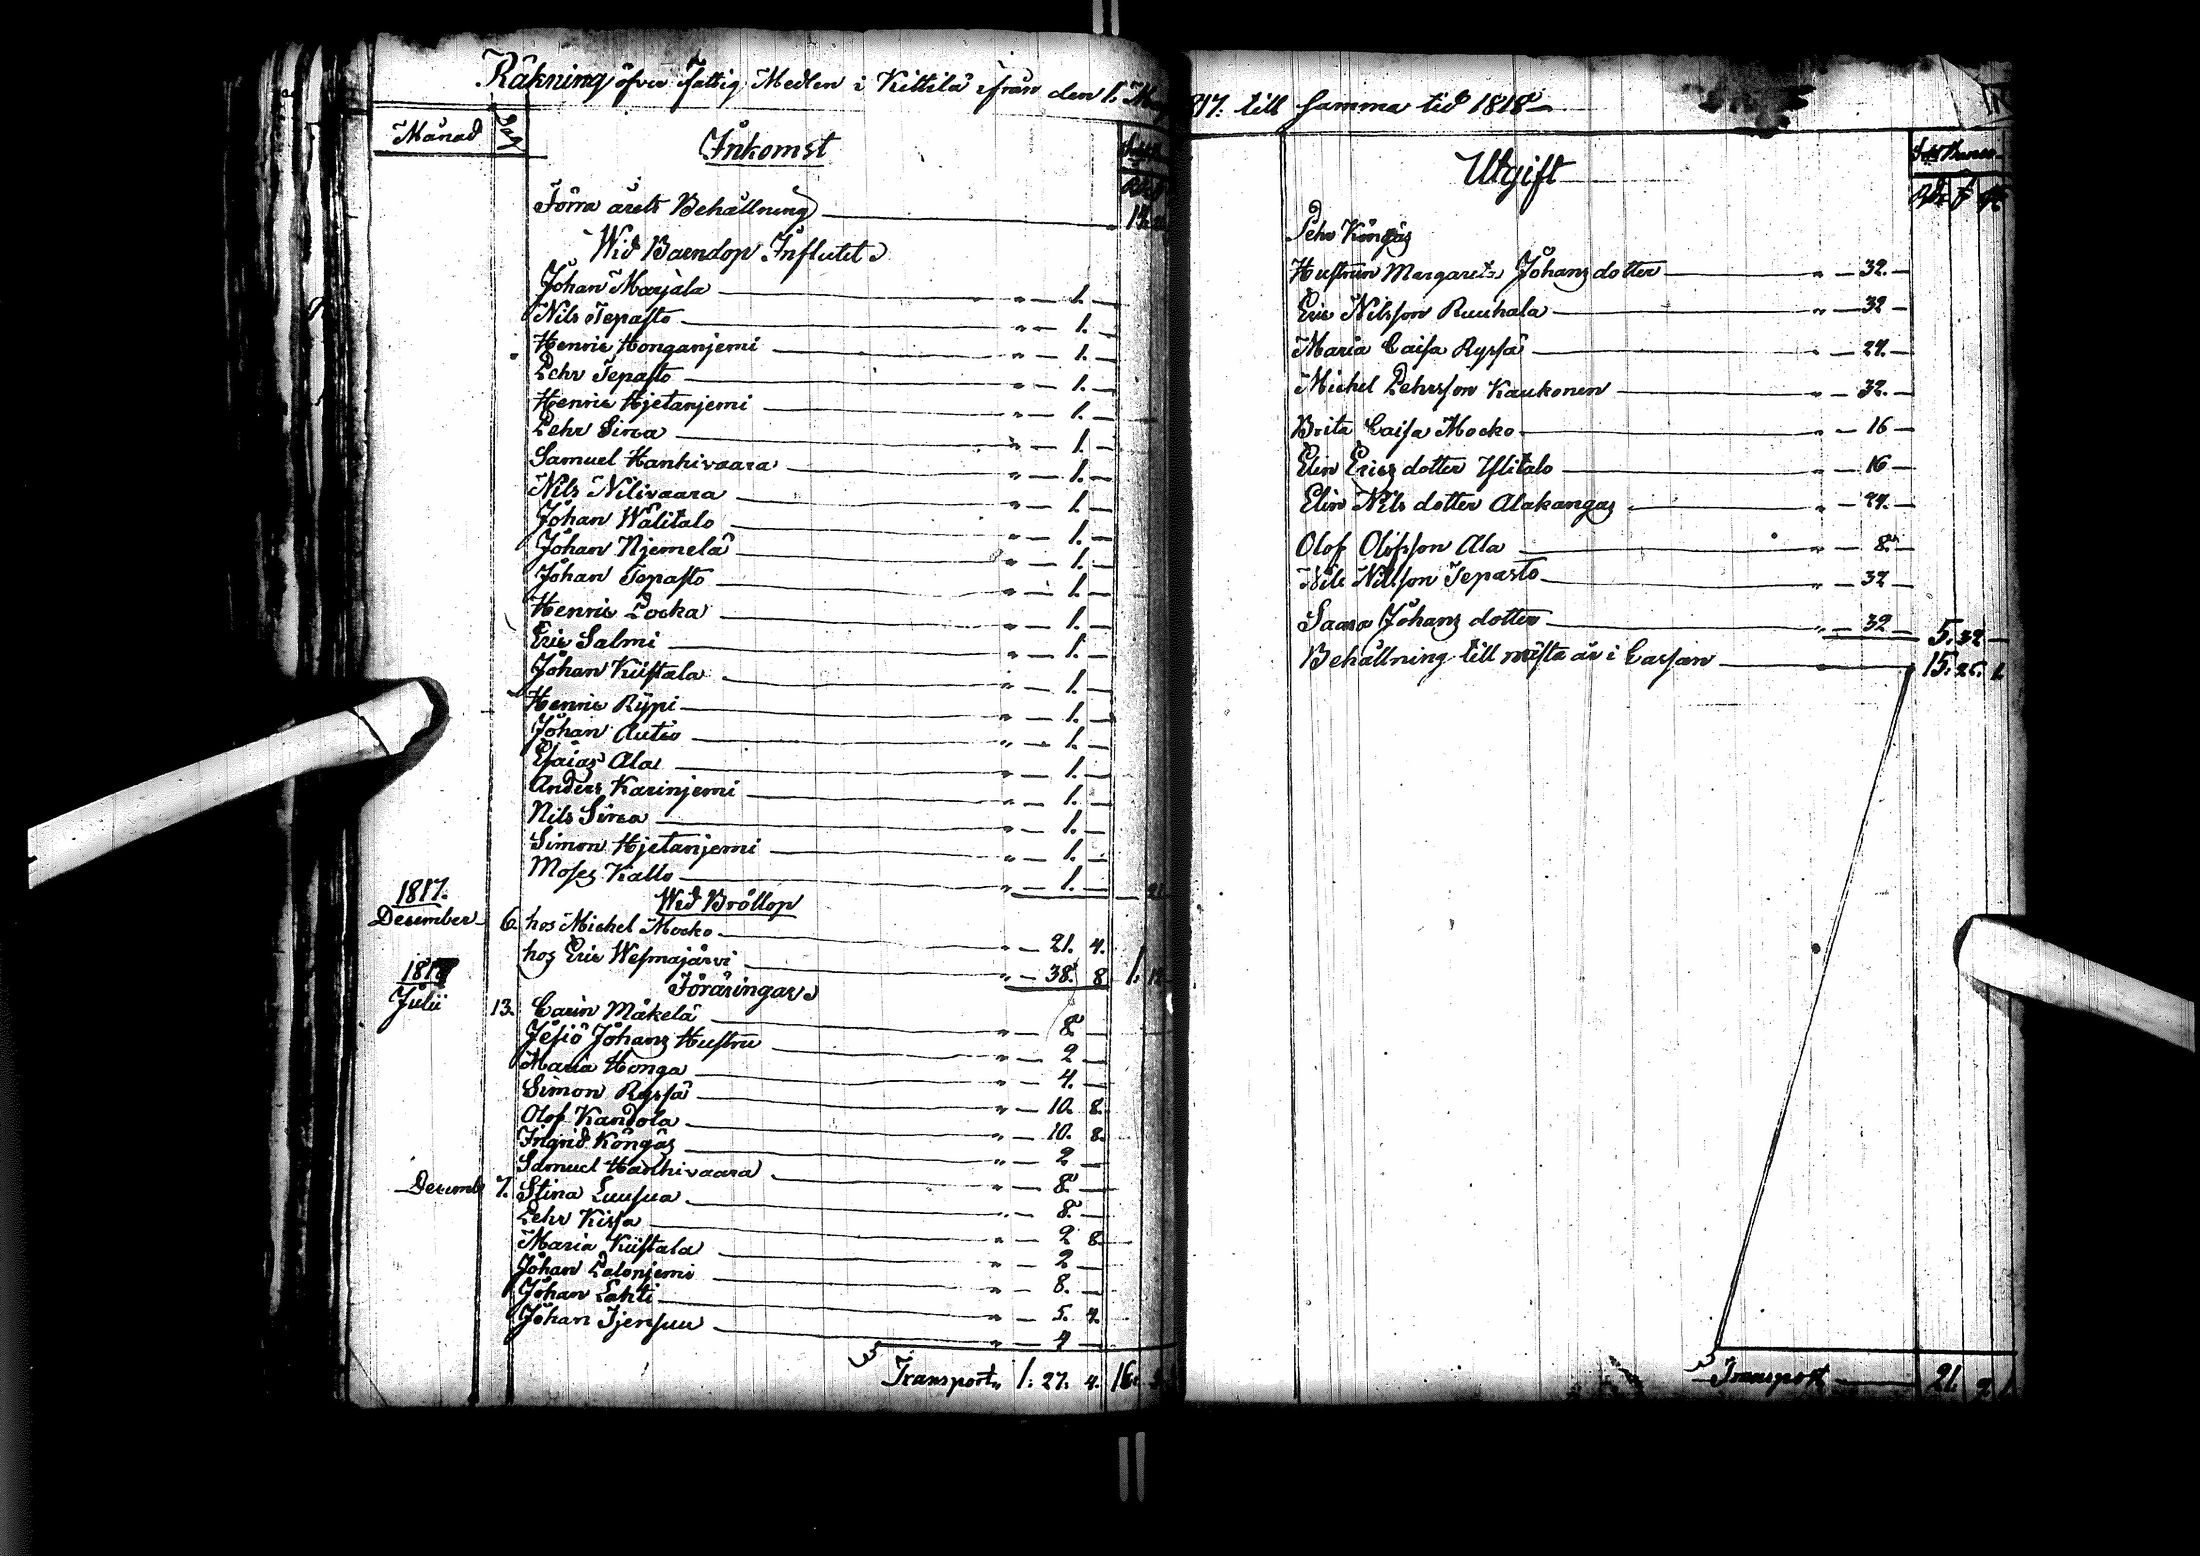 Räkning öfver Fattig Medlen i Kittilä ifrån den 1. May 1817. till samma tid 1818
Månad Dag Inkomst
Förra årets Behållning
Wid Barndop Influtit
Johan Marjala " — 1. —
Nils Tepasto " — 1. —
Henric Honganjemi " — 1. —
Pehr Tepasto " — 1. —
Henric Hjetanjemi " — 1. —
Pehr Sirca " — 1. —
Samuel Hanhivaara " — 1. —
Nils Nilivaara " — 1. —
Johan Wälitalo " — 1. —
Johan Njemelä " — 1. —
Johan Tepasto " — 1. —
Henric Pocka " — 1. —
Eric Salmi " — 1. —
Johan Kiistala " — 1. —
Henric Rÿpi " — 1. —
Johan Autio " — 1. —
Esaias Ala " — 1. —
Anders Karinjemi " — 1. —
Nils Sirca " — 1. —
Simon Hjetanjemi " — 1. —
Moses Kallo " — 1. — 21
1817. Wid Bröllop
December 6. hos Michel Mocko " — 21. 4.
hos Eric Wesmajärvi " — 38. 8 1.
1818 Föräringar
Julii 13. Carin Mäkelä " — 8 —
Jesiö Johans Hustru " — 2 —
Maria Honga " — 4. —
Simon Ryssä " — 10. 8.
Olof Kandola " — 10. 8.
Ingrid Köngäs " — 2 —
Samuel Hanhivaara " — 8. —
Decemb 7. Stina Luusua " — 8. —
Pehr Kissa " 2 8.
Maria Kiistala " — 2 —
Johan Palonjemi " — 8. —
Johan Lahti " — 5. 4.
Johan Tjensuu " — 4
Transport 1. 27. 4. 16.
Utgift
Pehr Köngäs
Hustrun Margareta Johansdotter " — 32. —
Eric Nilsson Ruuhala " — 32 —
Maria Caisa Ryssä " — 24. —
Michel Pehrsson Kaukonen " — 32. —
Brita Caisa Mocko " — 16 —
Elin Ericsdotter Ylitalo " — 16 —
Elin Nilsdotter Alakangas " — 24. —
Olof Olofsson Ala " — 8. —
Nils Nilsson Tepasto " — 32 —
Saara Johansdotter " — 32 — 5. 32 —
Behållning till nästa år i Cassan 15. 26.
Transport 21.